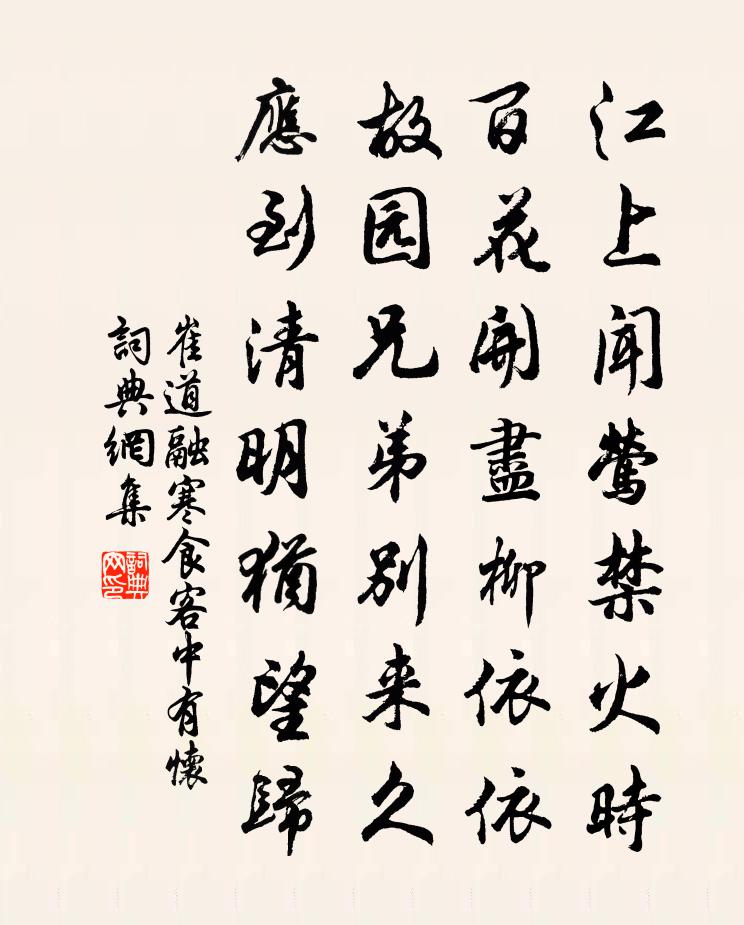 江上闻莺禁火時
百花開盡柳依依
故园兄弟别来久
應到清明猶望歸
崔道融寒食客中有懷
詞典網集
詞典网印